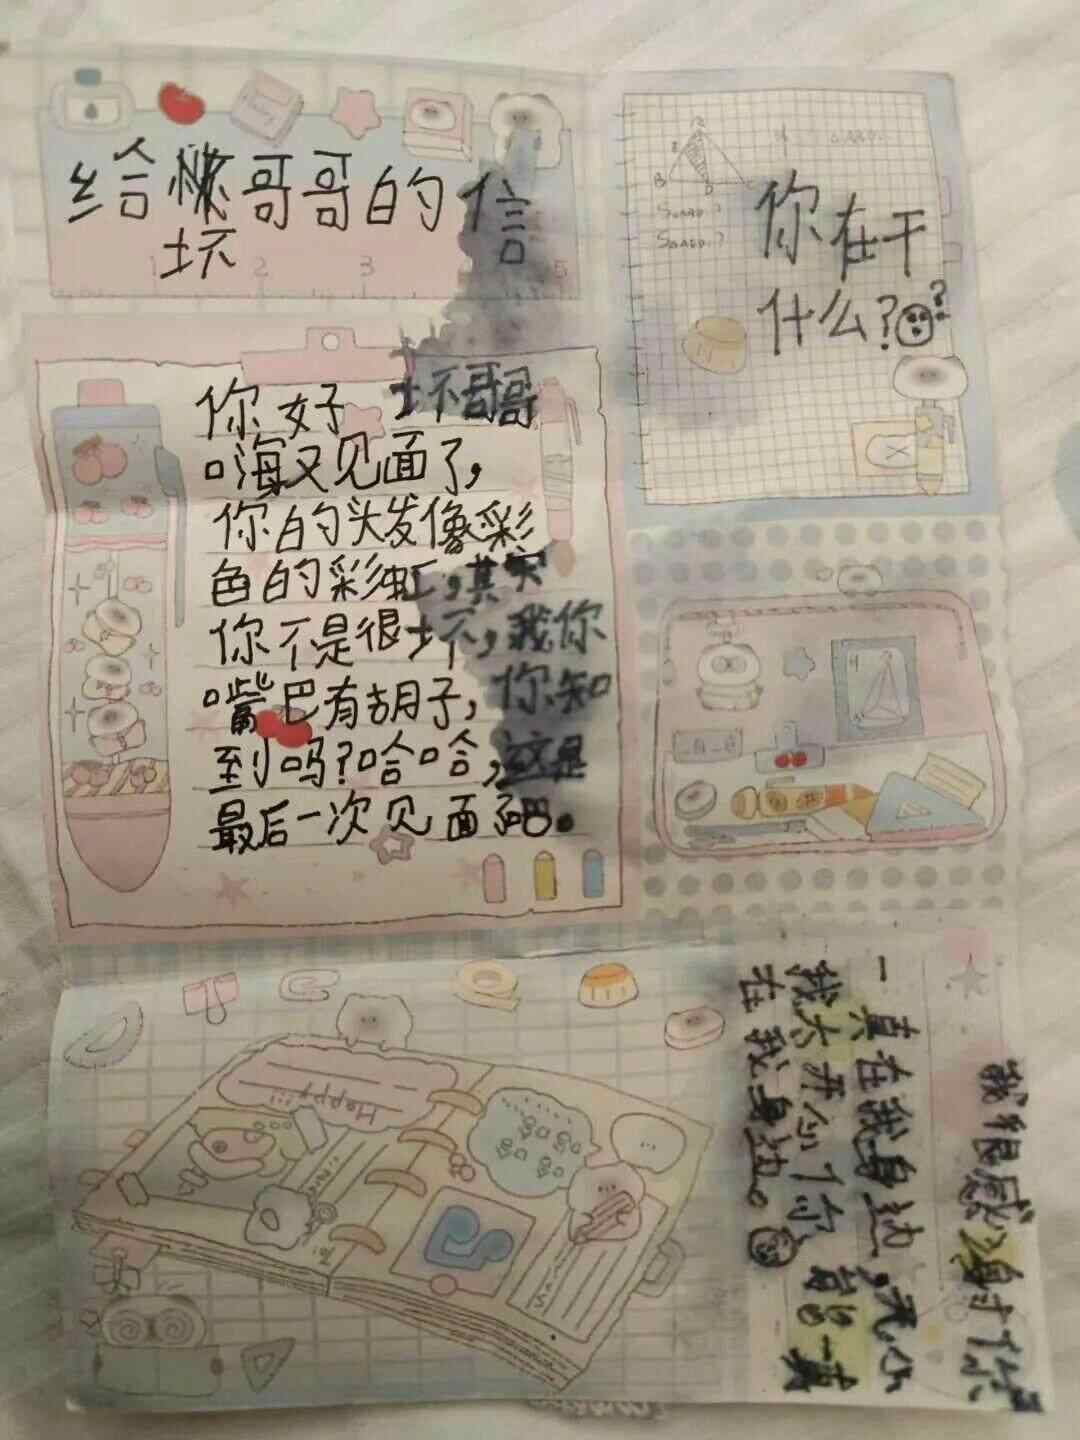 给坏哥哥的信
你在干
什么?
你好 坏哥哥
嗨又见面了,
你的头发像彩
色的彩虹,其实
你不是很坏,我你
嘴巴有胡子,你知
到吗?哈哈,这是
最后一次见面了吧。
Happy!!!
我很感谢你
一真在我身边,
我太开心了你能一真
在我身边。